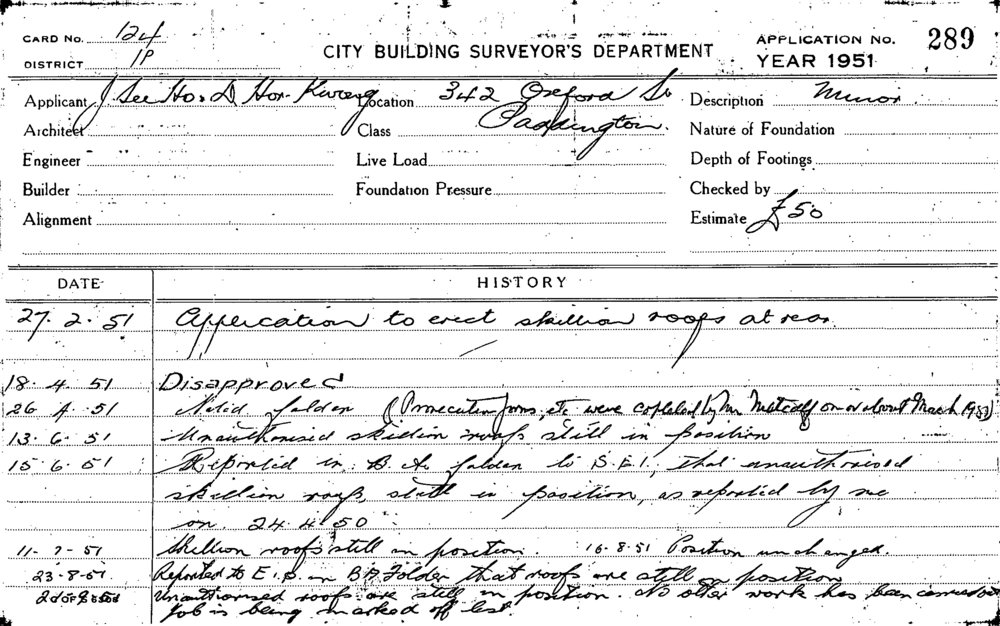 CARD No. 124
DISTRICT 1P
CITY BUILDING SURVEYOR'S DEPARTMENT
APPLICATION No. 289
YEAR 1951
Applicant J See Ho & D Hor Kwong Location 342 Oxford St Description Minor.
Architect Class Paddington. Nature of Foundation
Engineer Live Load Depth of Footings
Builder Foundation Pressure Checked by
Alignment Estimate £50
DATE HISTORY
27. 2. 51 Application to erect skillion roofs at rear
18. 4. 51 Disapproved
26 4. 51 Noted folder (Prosecution forms, etc were completed by Mr Metcalf on or about March 1951)
13. 6. 51 Unauthorised skillion roofs still in position
15. 6. 51 Reported in B. A. folder to S.E.I, that unauthorised
skillion roofs still in position, as reported by me
on 24. 4. 50
11- 7- 51 Skillion roofs still in position. 16.8.51 Position unchanged.
23-8-51 Reported to E.I.S. in B.A. Folder that roofs are still in position
Unauthorised roofs are still in position. No other work has been carried out
Job is being marked off list.